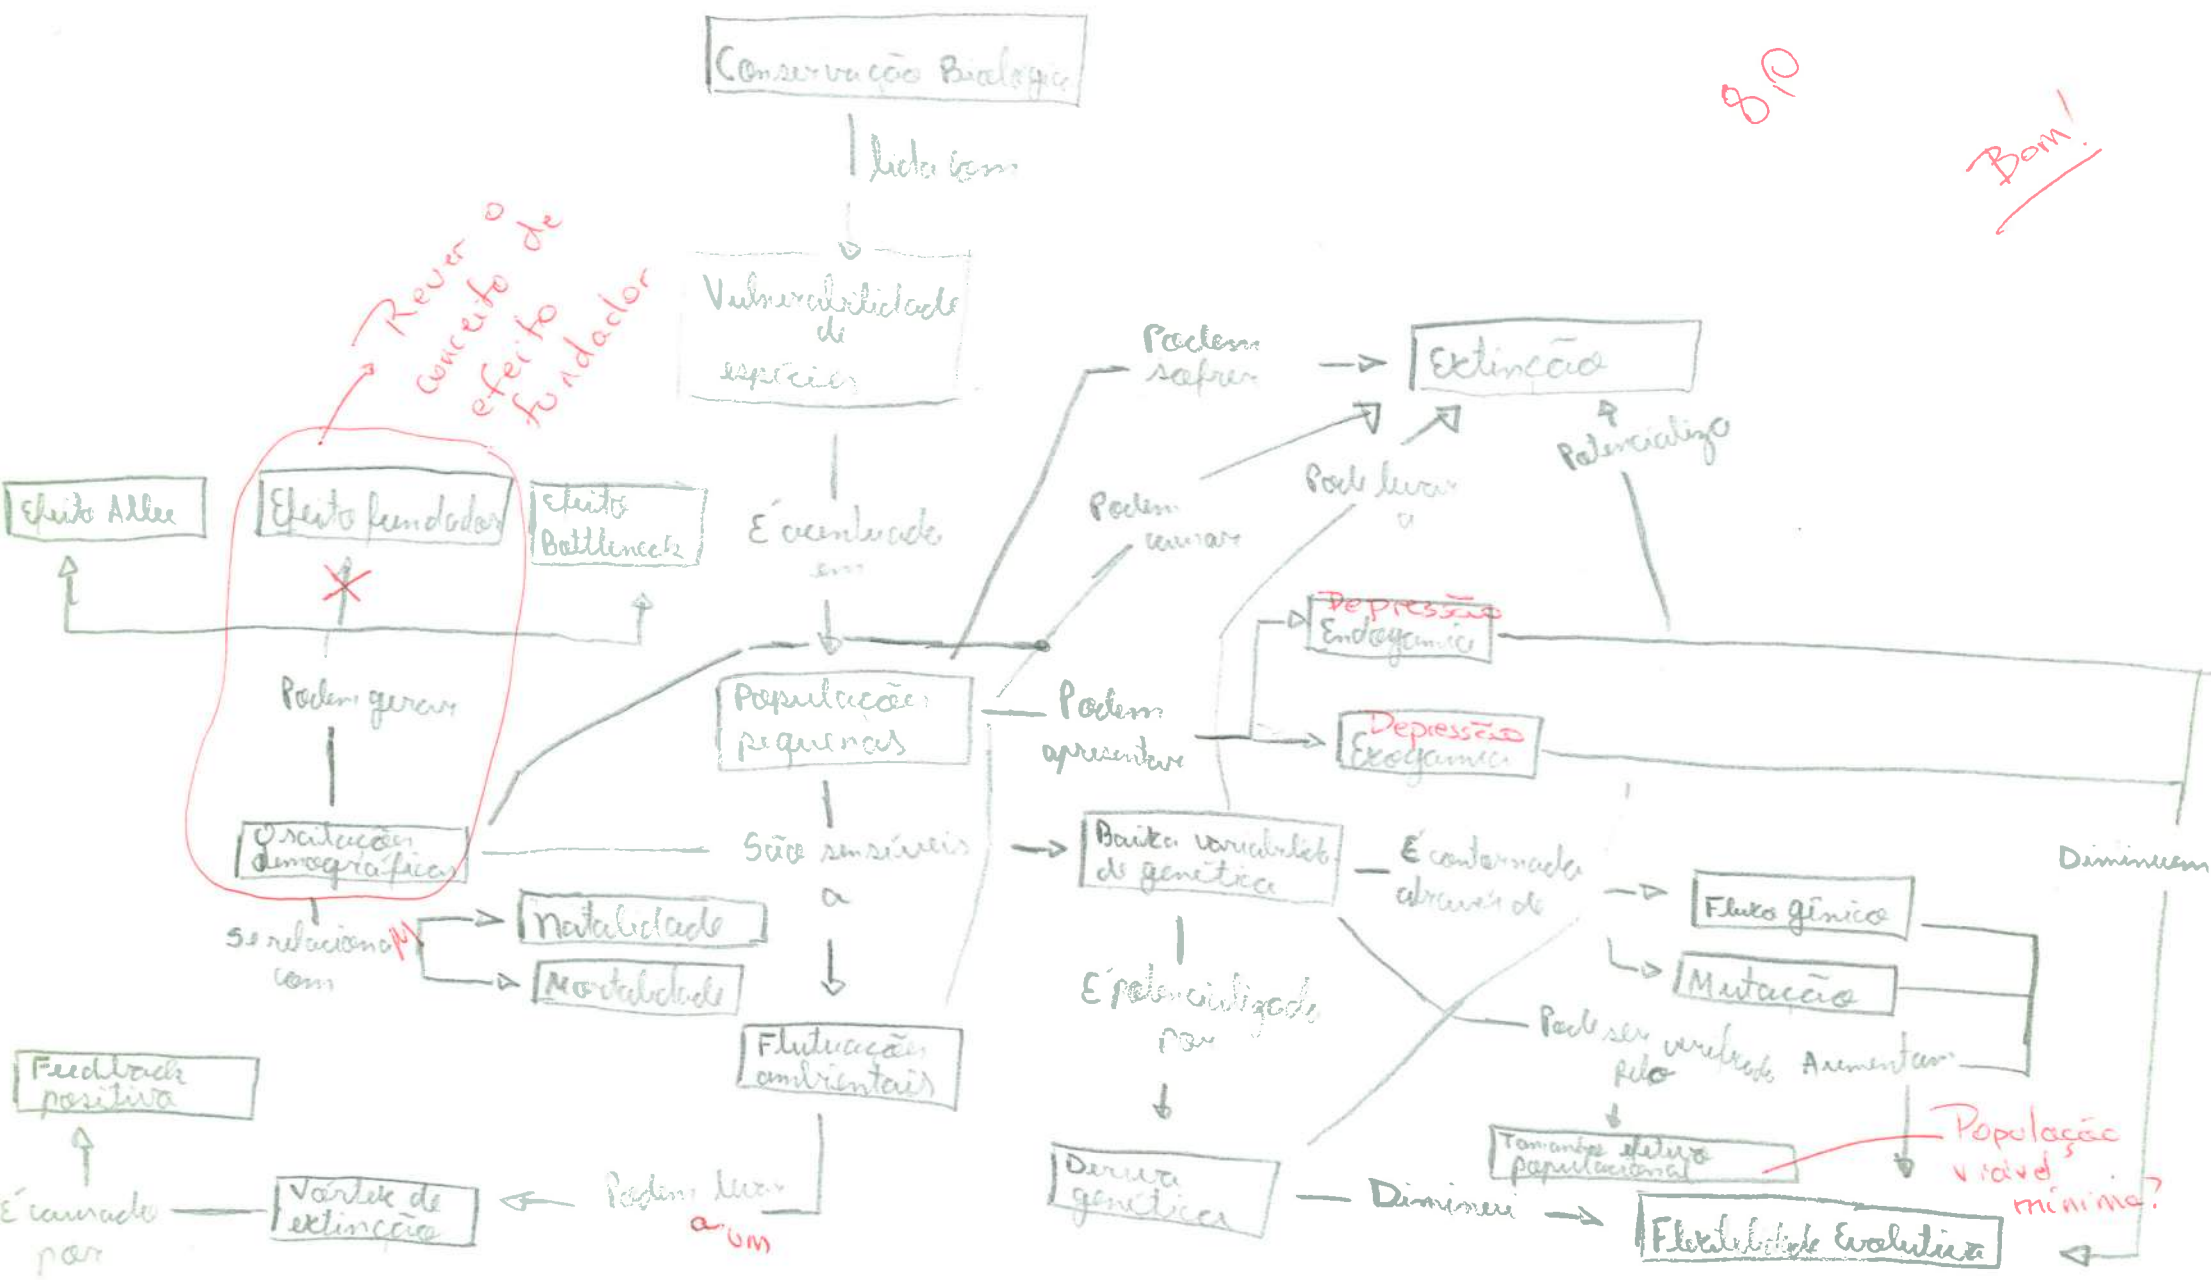 Conservação Biológic
8,0
Bom!
lida com
Rever o
conceito de
efeito
fundador
Vulnerabilidade
de
espécies
Podem
sofrer
Extinção
Potencializa
Pode levar
a
Podem
causar
Efeito Allee
Efeito fundador
Efeito
Bottleneck
É acentuada
em
Depressão
Endogamia
Podem gerar
Populações
pequenas
Podem
apresentar
Depressão
Exogamia
Oscilações
demográficas
São sensíveis
a
Baixa variabilid.
de genética
É contornada
através de
Fluxo gênico
Diminuem
Se relacionam
com
Natalidade
Mortalidade
É potencializada
por
Mutação
Pode ser
pelo
Aumentam
Flutuações
ambientais
Feedback
positivo
Tamanho efetivo
populacional
População
viável
mínima?
É causado
por
Vórtex de
extinção
Podem levar
a um
Deriva
genética
Diminui
Flexibilidade Evolutiva